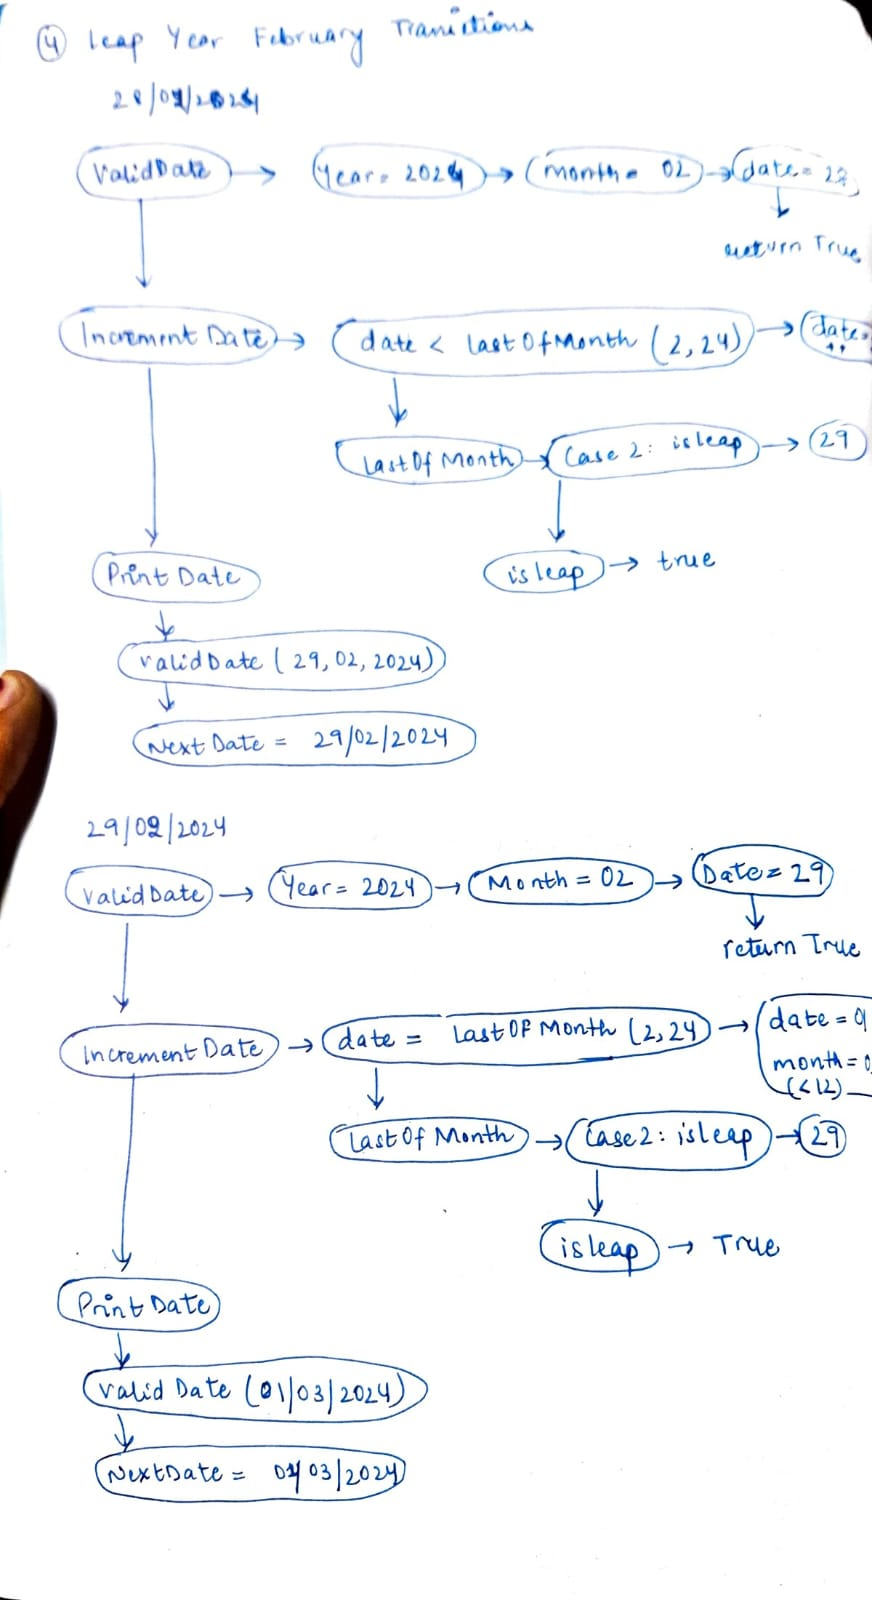 ④ Leap Year February Tranictions
28/02/2024
ValidDate → Year = 2024 → month = 02 → date = 28
return True
Increment Date → date < Last Of Month (2,24) → date ++
Last Of Month → Case 2: isleap → 29
isleap → true
Print Date
validDate (29,02,2024)
Next Date = 29/02/2024
29/02/2024
ValidDate → Year = 2024 → Month = 02 → Date = 29
return True
Increment Date → date = Last Of Month (2,24) → date = 01
month = 0
(<12)
Last Of Month → Case 2: isleap → 29
isleap → True
Print Date
Valid Date (01/03/2024)
NextDate = 01/03/2024